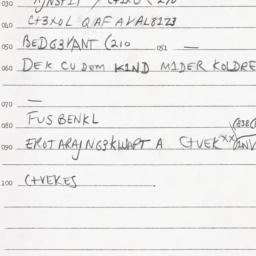 040 C+3XOL QAFAVAL8123
050 BEDG3VANT (210 051 —
060 DEK CU DEM KIND MIDER KOLDRE
070 —
080 FUSBENKL
090 EROTARAJNG3KWAPT A C+VEK xx
100 C+VEKES